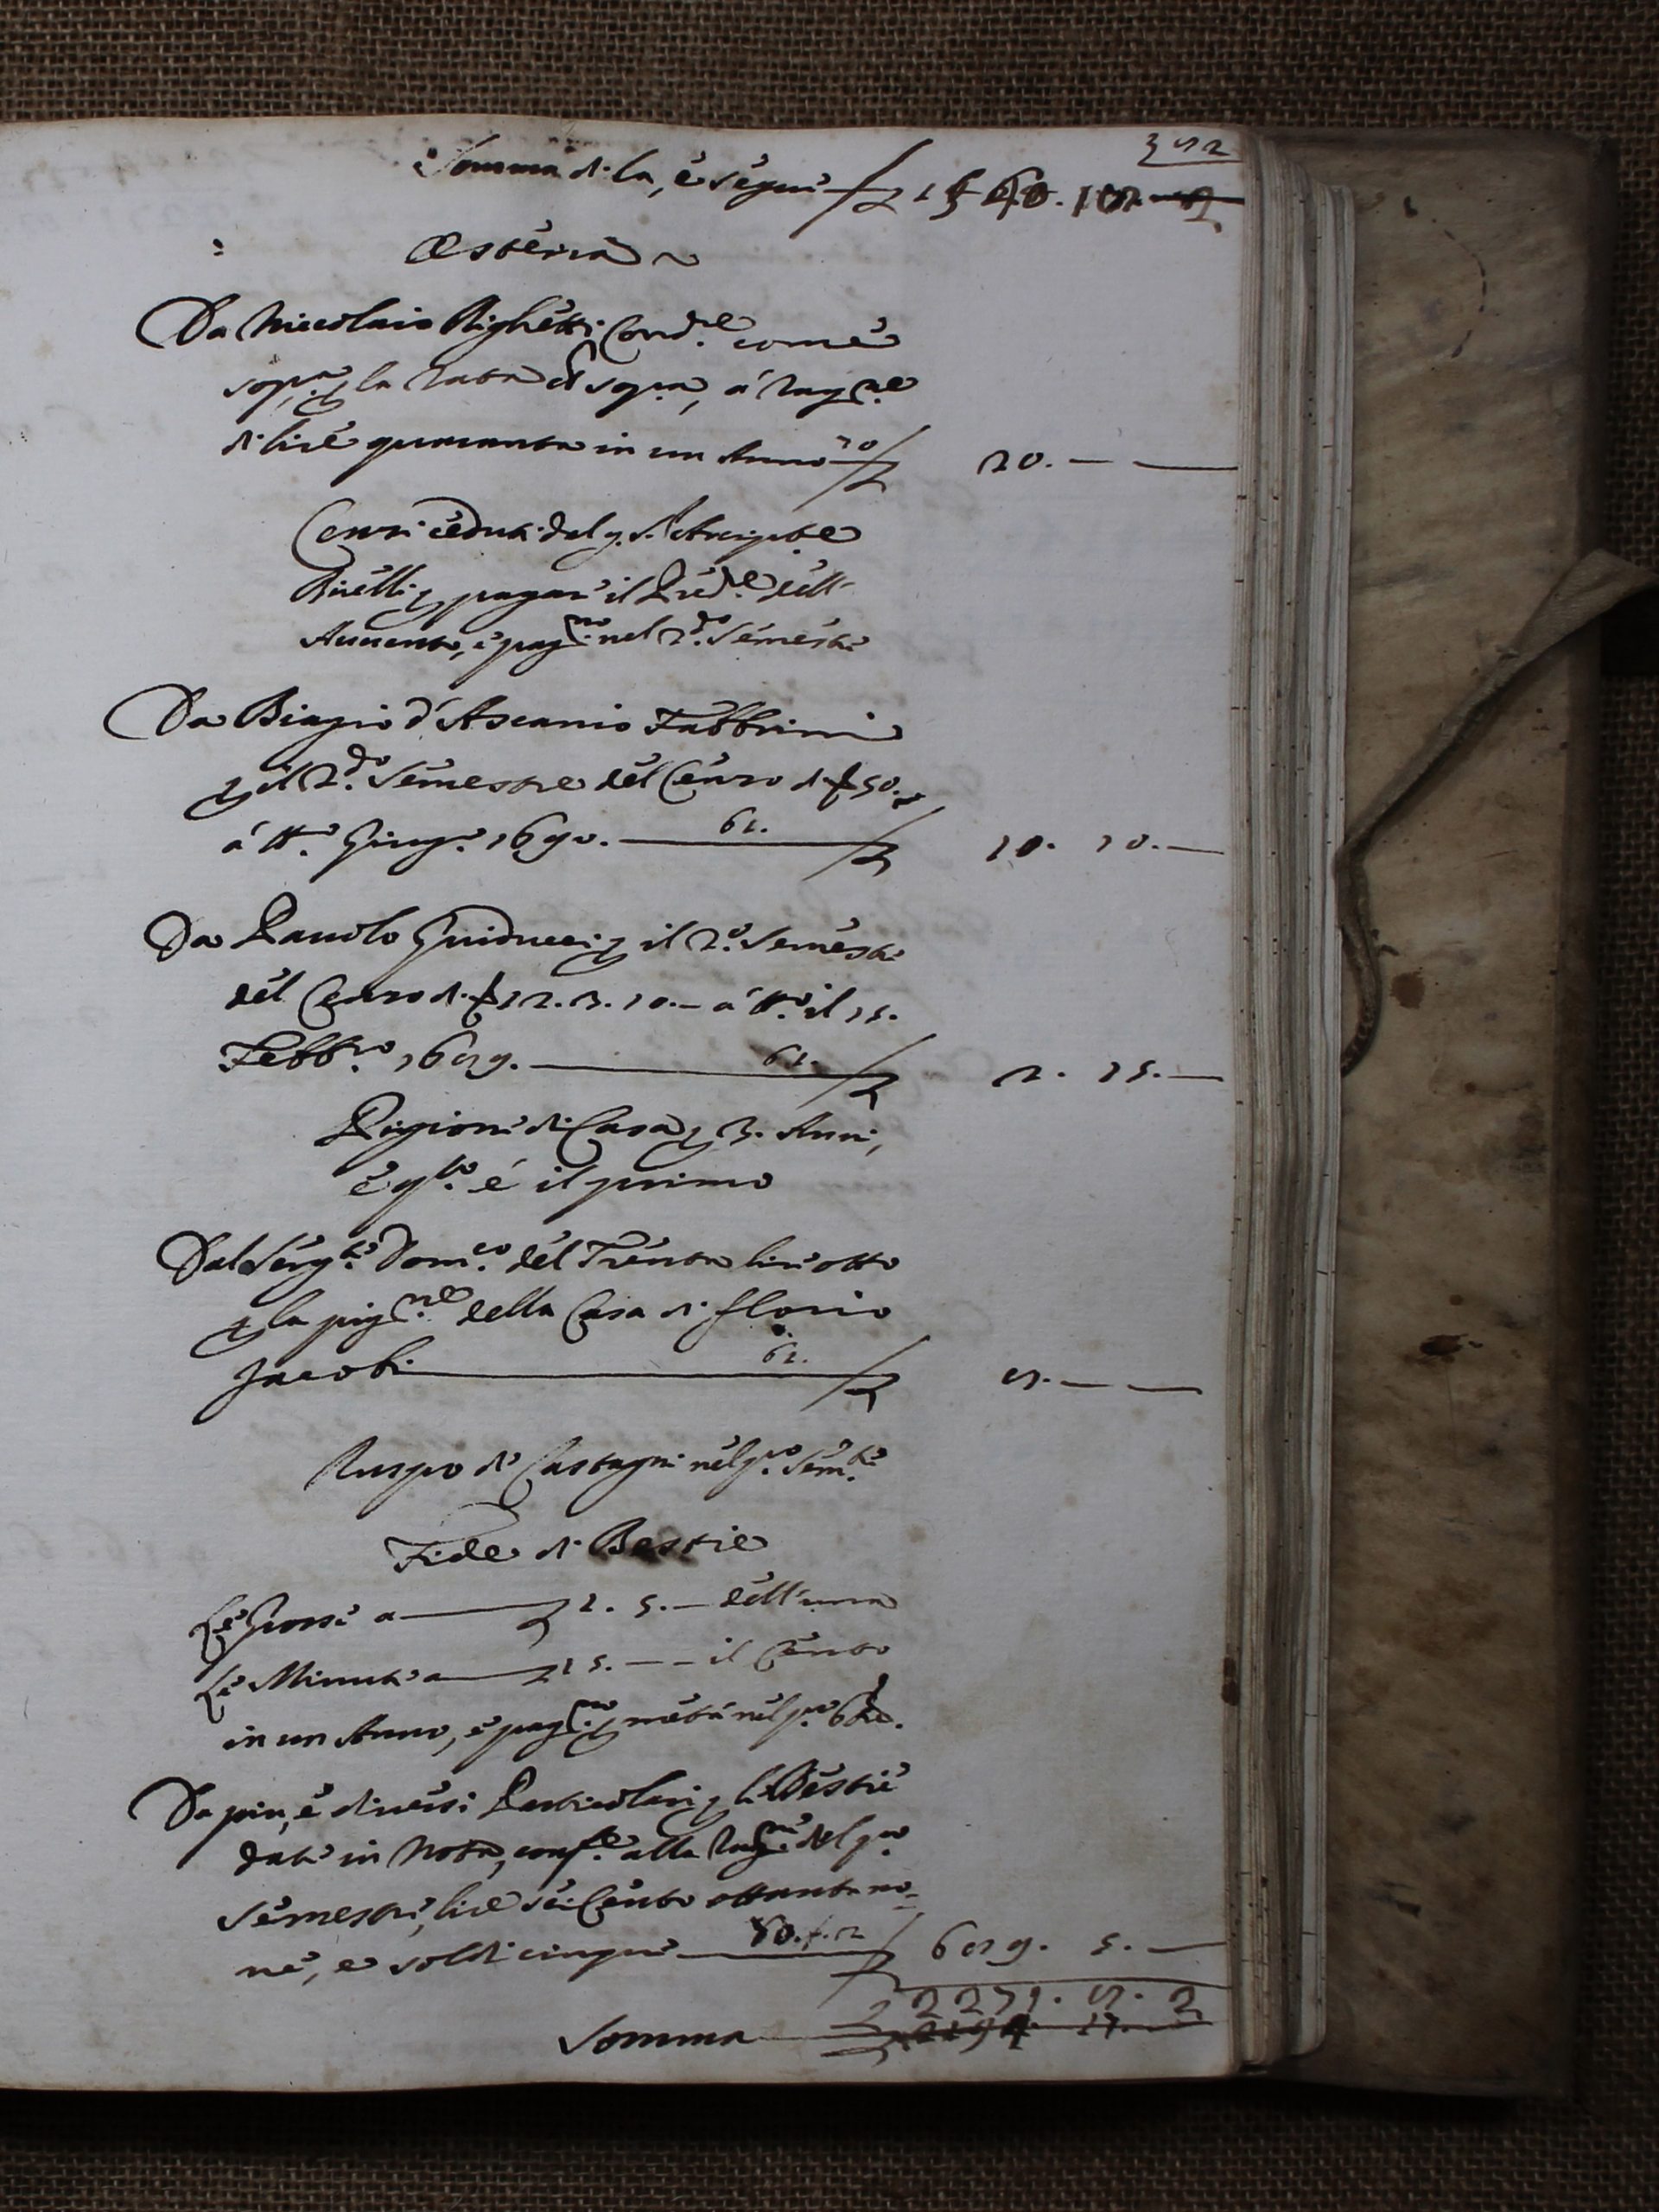 382
Somma di la, e segue £ 1560. 18. 2
Osteria
Da Niccolaio Righetti Cond.re come
sop.a p la rata di sop.a, á rag.ne
di lire quaranta in un Anno 70 £ 20. — —
Censi ceduti dal q. S.
Binelli p pagare il Pred.e dell'
Aumento, e pag.no nel 2.do Semestre
Da Biagio d'Ascanio Fabbrini
p il 2.do Semestre del Censo di 50.
á tt.o Giug.o 1690. — 61. £ 10. 10. —
Da Pauolo Guiducci p il 2.o Semestre
del Censo di 12. 3. 10. — á tt.o il 15.
Febb.ro 1689. — 61. £ 2. 15. —
Pigioni di Casa p 3. Anni,
e q.to é il primo
Dal Serg.te Dom.co del Trenta lire otto
p la pig.ne della Casa di Florio
Jacobi — 61. £ 8. — —
Ruspo di Castagni nel p.o Sem.re
Fide di Bestie
Le Grosse a — £ 1. 5. — dell'una
Le Minute a — £ 15. — — il Cento
in un Anno, e pag.no p metá nel p.o
Da piu, e diversi Particolari p le Bestie
date in Nota, conf.e alla rag.ne del p.o
Semestre, lire sei Cento ottanta no-
ne, e soldi cinque — 80. £ 689. 5. —
2271. 8. 2
Somma